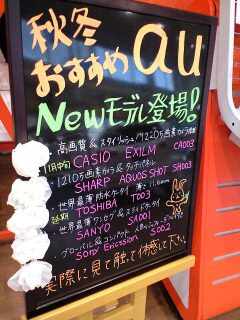 秋冬
おすすめ au
Newモデル登場!
・高画質 & スタイリッシュ
11月中旬 CASIO EXILIM CA003
・1210万画素カメラ & タッチパネル
SHARP AQUOS SHOT SH003
・世界最薄防水ケータイ
延期 TOSHIBA T003
・世界最薄ワンセグ&スライドケータイ
SANYO SA001
・グローバル & コンパクト
Sony Ericsson S002
実際に見て触って体感して下さい